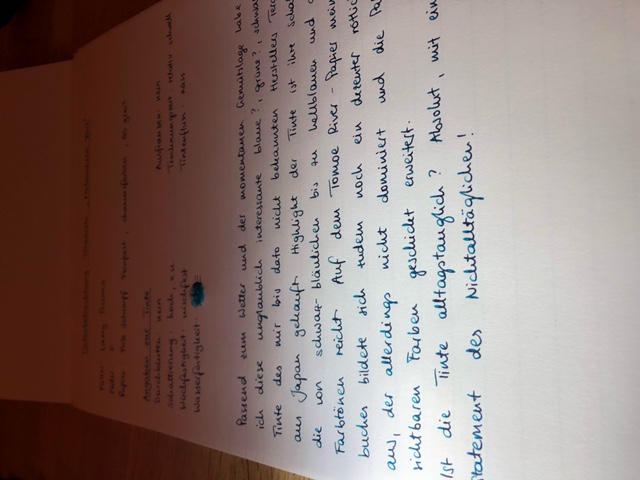 Füller: Lamy
Feder: F
Papier: , chamoisfarben, 80 g/m²
Angaben zur Tinte
Durchbluten: nein
Ausfransen: nein
Schattierung: hoch,
Trocknungszeit relativ schnell
Wischfestigkeit: wischfest
Tintenfluss: nass
Wasserfestigkeit:
Passend zum Wetter und der momentanen Gemütslage habe
ich diese unglaublich interessante blaue?, grüne?, schwa
Tinte des mir bis dato nicht bekannten Herstellers
aus Japan gekauft. Highlight der Tinte ist ihre Scha
die von schwarz-bläulichen bis zu hellblauen und
Farbtönen reicht. Auf dem Tomoe River-Papier mein
buches bildete sich zudem noch ein dezenter rötlic
aus, der allerdings nicht dominiert und die Pa
sichtbaren Farben geschickt erweitert.
Ist die Tinte alltagstauglich? Absolut, mit ein
Statement des Nichtalltäglichen!